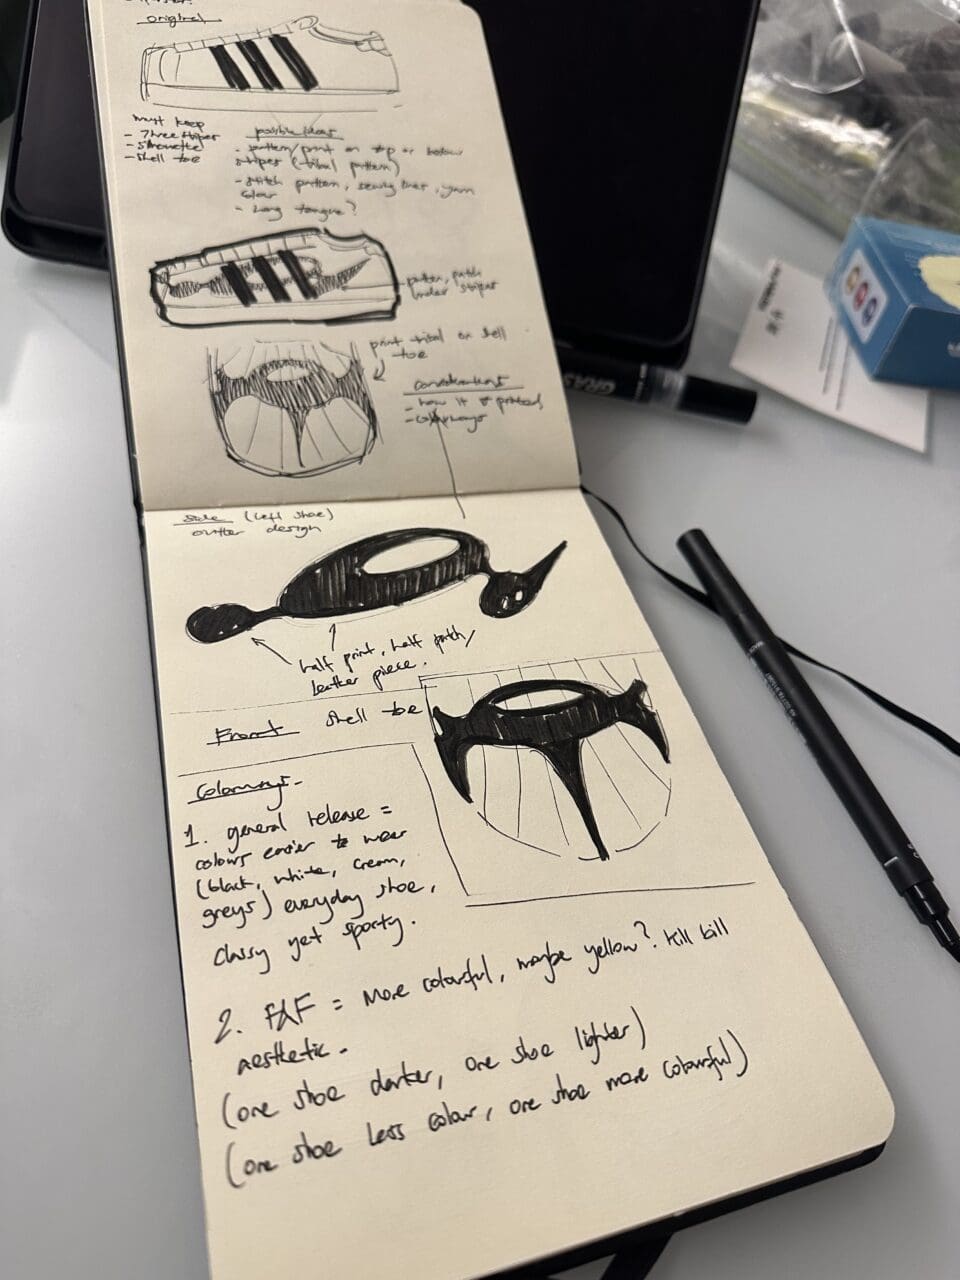 original
must keep
- Three stripes
- silhouette
- shell toe
possible ideas
- pattern/print on top or below
stripes (tribal pattern)
- stitch pattern, sewing lines, yarn
colour
- Long tongue?
pattern, patch
under stripes
print tribal on shell
toe
considerations
- how it is printed,
- colorways
side (left shoe)
outter design
half print, half patch/
leather piece.
Front shell toe
Colorways-
1. general release =
colours easier to wear
(black, white, cream,
greys) everyday shoe,
classy yet sporty.
2. F&F = more colourful, maybe yellow? Kill bill
aesthetic.
(one shoe darker, one shoe lighter)
(one shoe less colour, one shoe more colourful)
GRAS